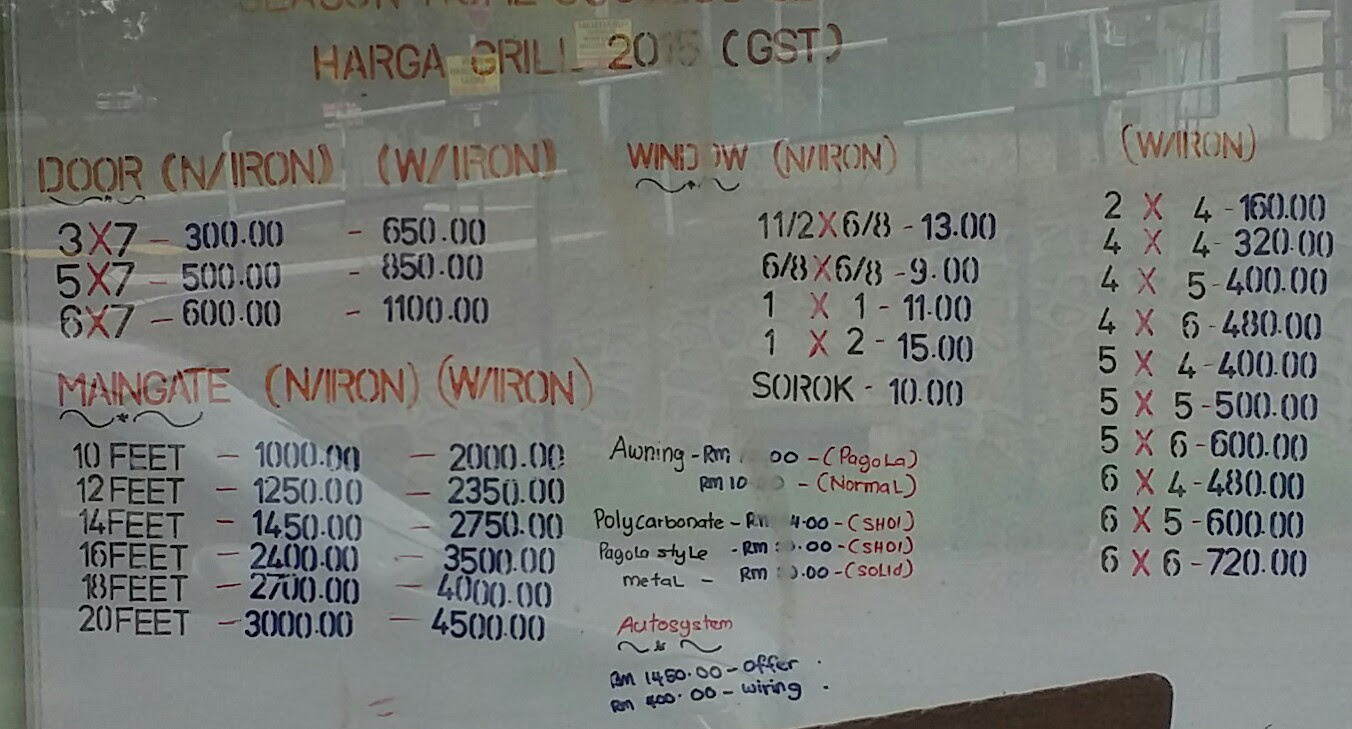 HARGA GRILL 2015 (GST)
DOOR (N/IRON) (W/IRON)
3X7 - 300.00 - 650.00
5X7 - 500.00 - 850.00
6X7 - 600.00 - 1100.00
MAINGATE (N/IRON) (W/IRON)
10 FEET - 1000.00 - 2000.00
12 FEET - 1250.00 - 2350.00
14 FEET - 1450.00 - 2750.00
16 FEET - 2400.00 - 3500.00
18 FEET - 2700.00 - 4000.00
20 FEET - 3000.00 - 4500.00
WINDOW (N/IRON)
11/2 X 6/8 - 13.00
6/8 X 6/8 - 9.00
1 X 1 - 11.00
1 X 2 - 15.00
SOROK - 10.00
Awning - Rm 00 - (Pagola)
Rm - (Normal)
Polycarbonate - 4.00 - (SHOI)
Pagola style - Rm .00 - (SHOI)
metal - Rm .00 - (Solid)
Autosystem
Rm 1450.00 - Offer
Rm 400.00 - wiring
(W/IRON)
2 X 4 - 160.00
4 X 4 - 320.00
4 X 5 - 400.00
4 X 6 - 480.00
5 X 4 - 400.00
5 X 5 - 500.00
5 X 6 - 600.00
6 X 4 - 480.00
6 X 5 - 600.00
6 X 6 - 720.00